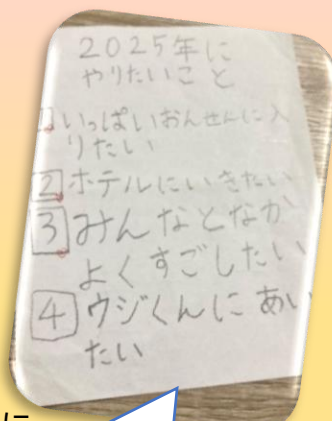 2025年に
やりたいこと
1 いっぱいおんせんに入
りたい
2 ホテルにいきたい
3 みんなとなか
よくすごしたい
4 ウジくんにあい
たい
に